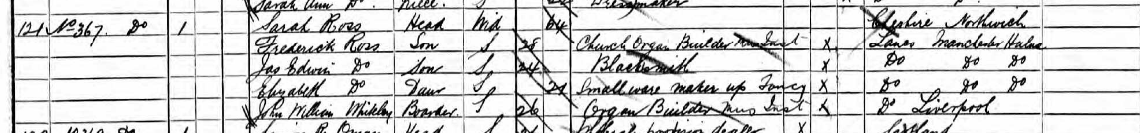 Sarah Ann Do. Niece S Dressmaker
121 No 367 Do 1 Sarah Ross Head Wid 64 Cheshire Northwich
Frederick Ross Son S 28 Church Organ Builder Mus Inst X Lancs Manchester Hulme
Jas Edwin Do Son S 24 Blacksmith X Do Do Do
Elizabeth Do Daur S 21 Small ware maker up Fancy X Do Do Do
Jno William Whiteley Boarder S 26 Organ Builder Mus Inst X Do Liverpool
Head provision dealer X Scotland